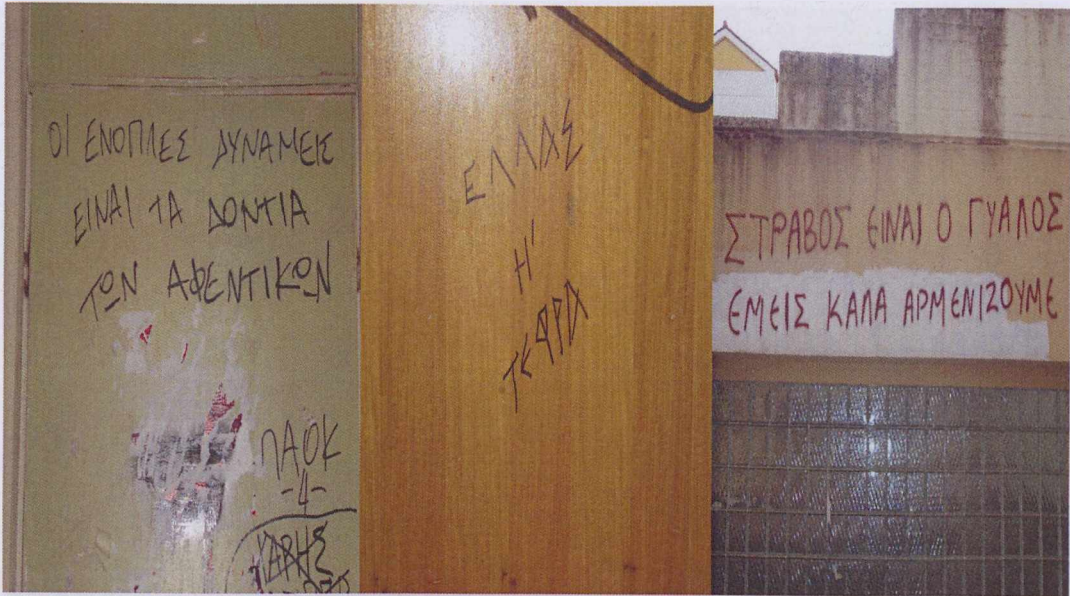 ΟΙ ΕΝΟΠΛΕΣ ΔΥΝΑΜΕΙΣ
ΕΙΝΑΙ ΤΑ ΔΟΝΤΙΑ
ΤΩΝ ΑΦΕΝΤΙΚΩΝ
ΠΑΟΚ
-4-
ΧΑΡΗΣ
ΕΛΛΑΣ
Η'
ΤΕΦΡΑ
ΣΤΡΑΒΟΣ ΕΙΝΑΙ Ο ΓΥΑΛΟΣ
ΕΜΕΙΣ ΚΑΛΑ ΑΡΜΕΝΙΖΟΥΜΕ